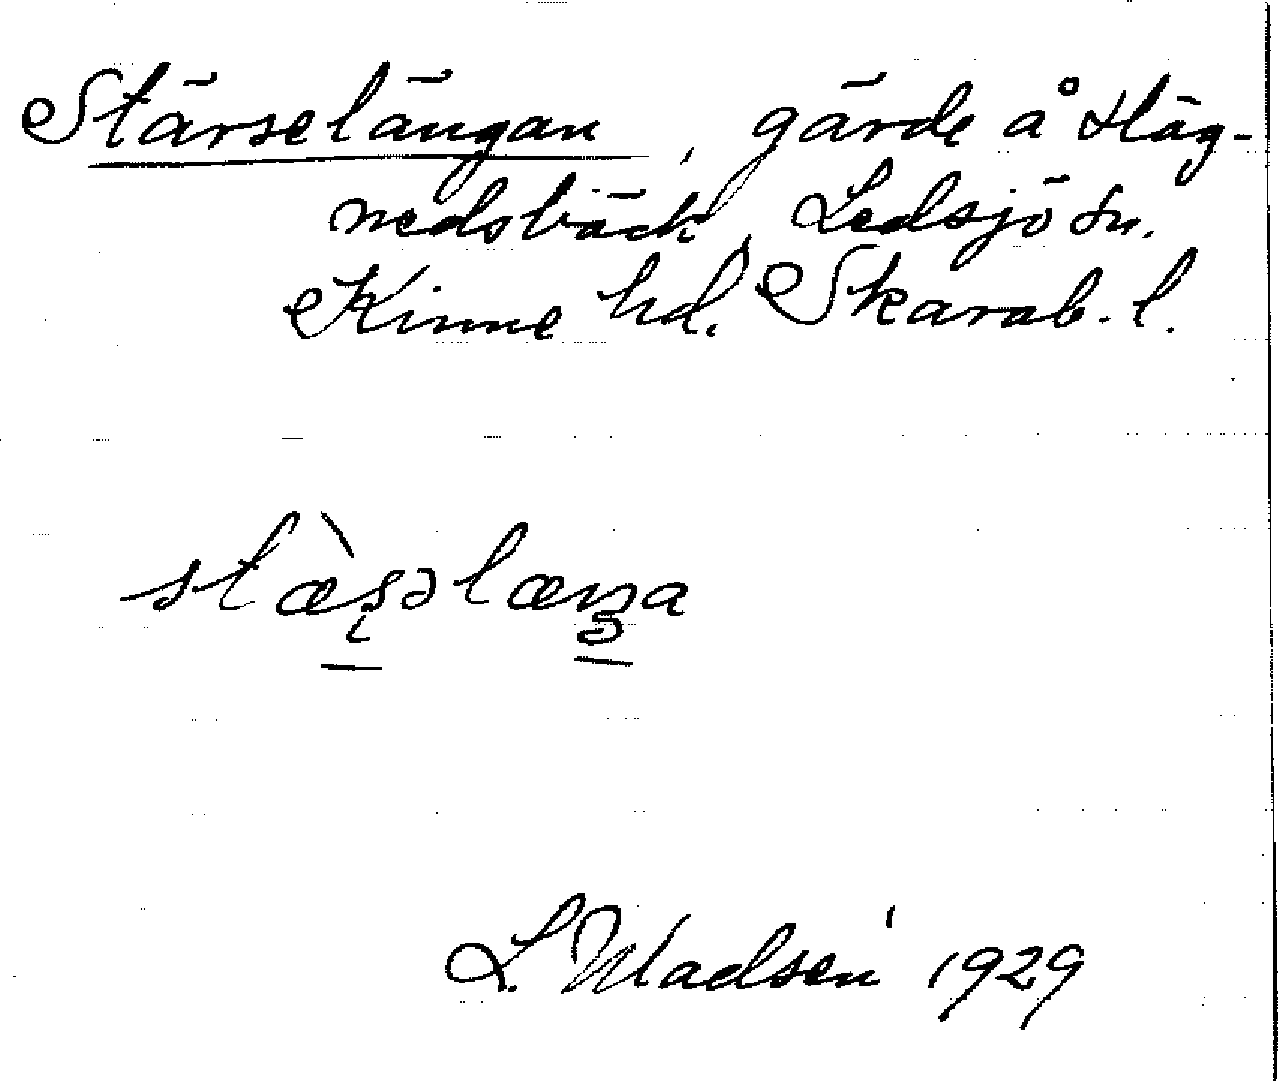 Stärselängan, gärde å Häg-
nedsbäck, Ledsjö sn.
Kinne hd. Skarab. l.
stæ̀ʂəlæŋa
L. Madsen 1929